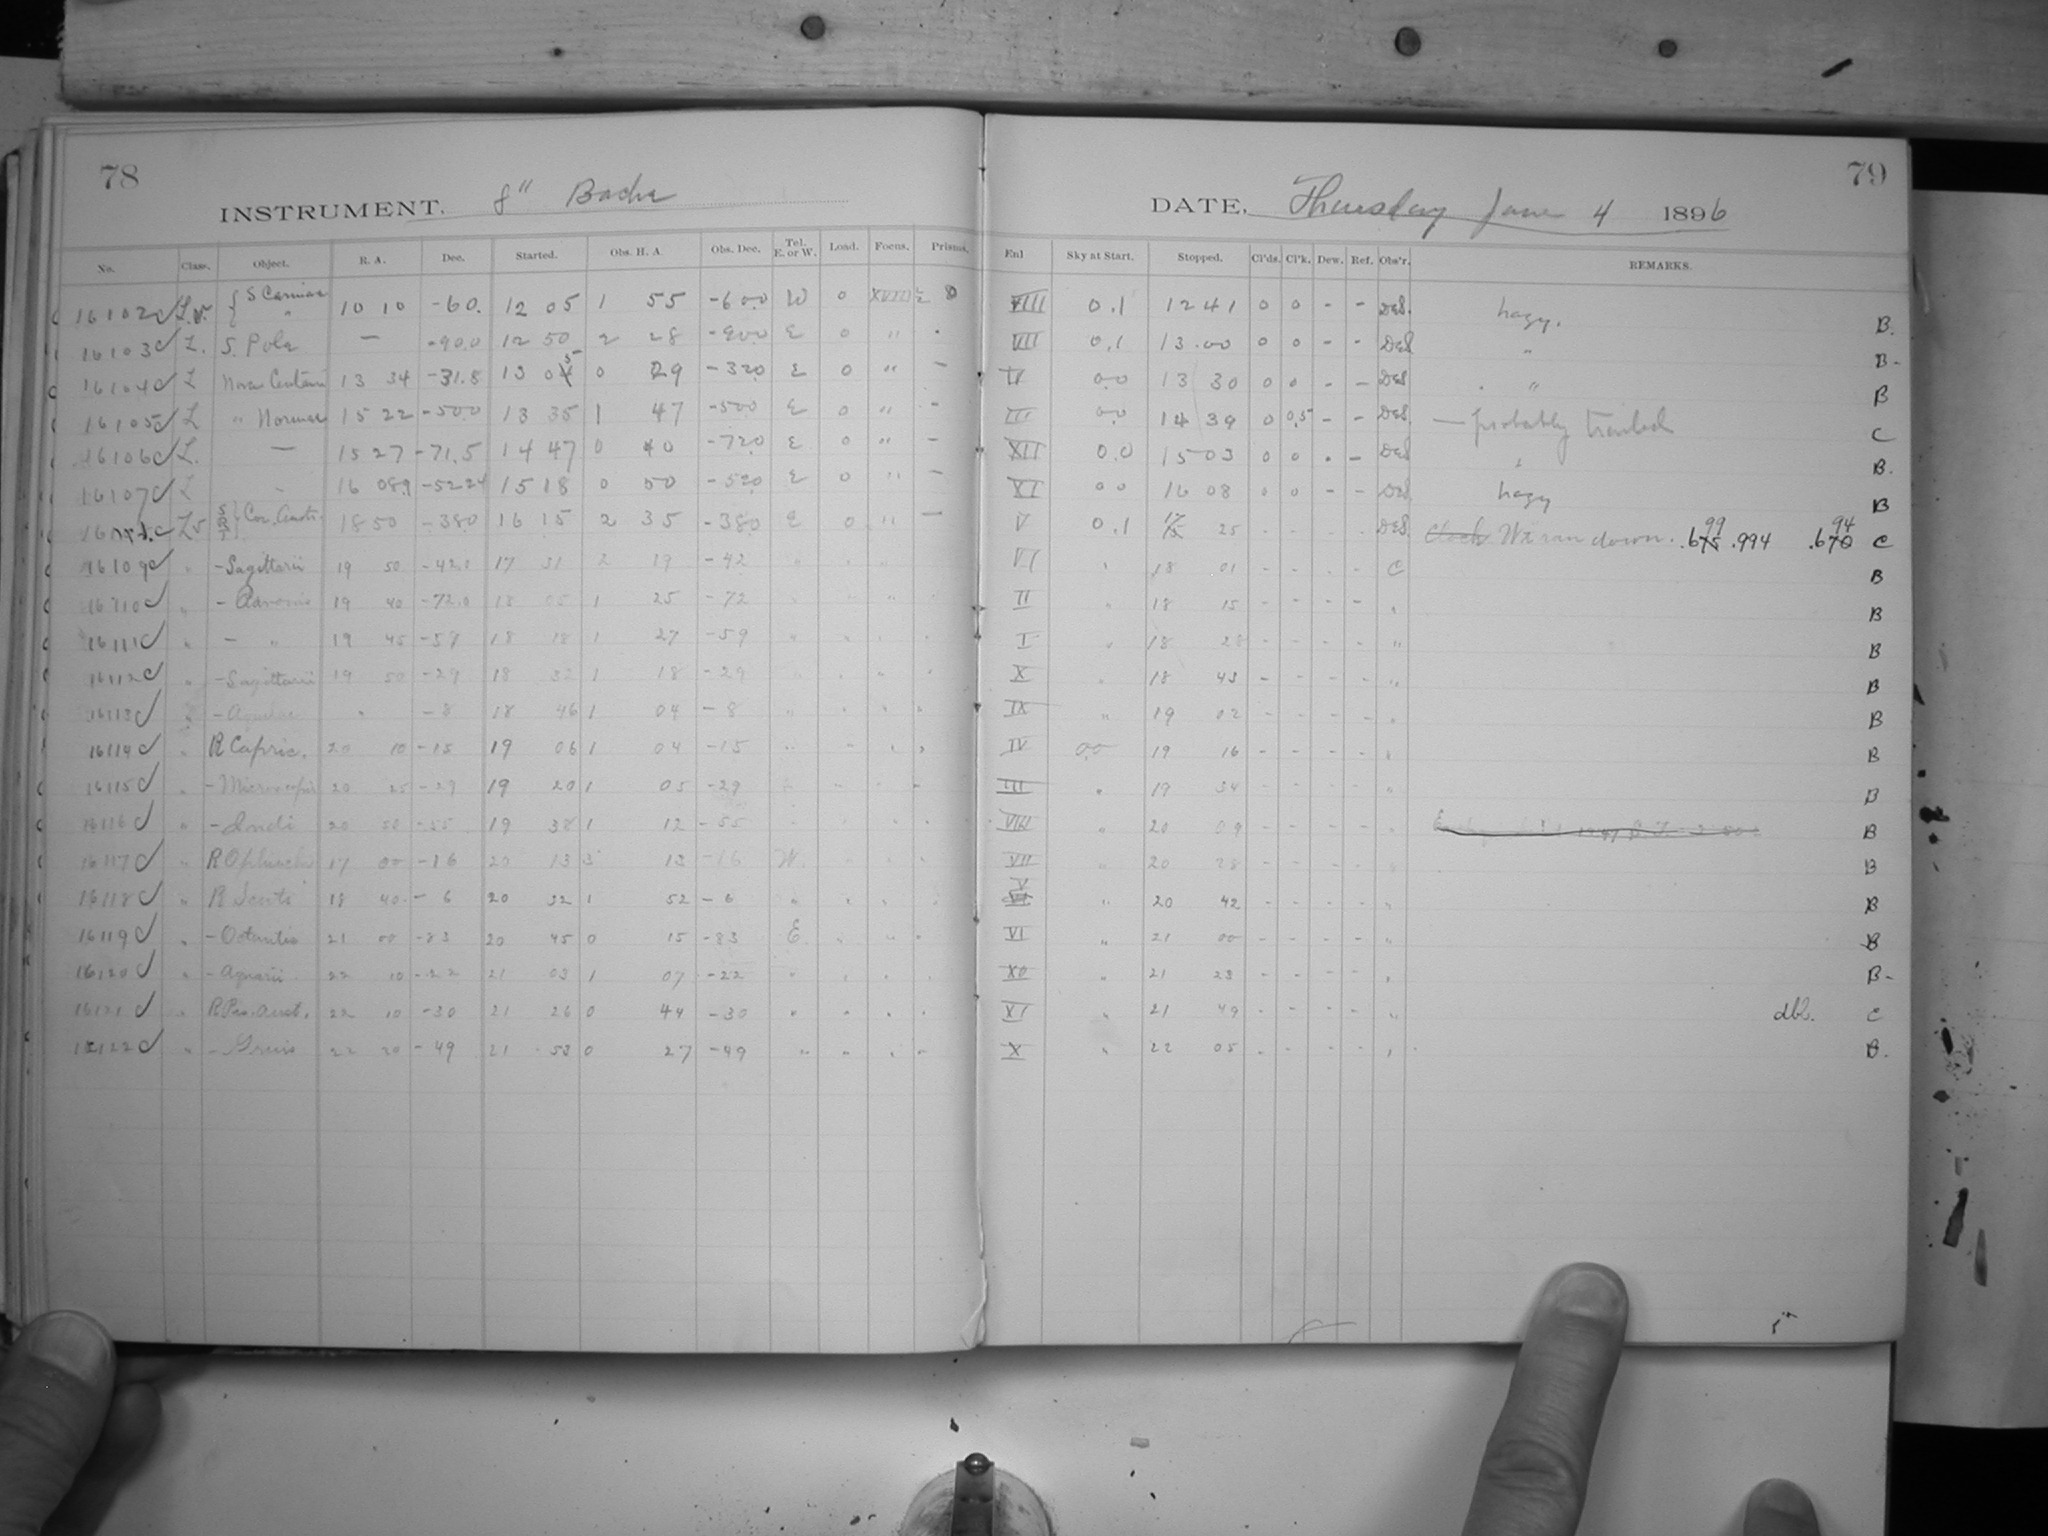 78
79
INSTRUMENT. 8" Bache
DATE, Thursday June 4 1896
No. Class. Object. R. A. Dec. Started. Obs. H. A. Obs. Dec. Tel. E. or W. Load. Focus. Prisms. Enl Sky at Start. Stopped. Cl'ds. Cl'k. Dew. Ref. Obs'r. REMARKS.
16102 L.v. { S Carinae " 10 10 -60. 12 05 1 55 -60.0 W 0 XVIII 0 VIII 0.1 12 41 0 0 - - DES. hazy. B.
16103 L. S. Pole — -90.0 12 50 2 28 -90.0 E 0 " - VII 0.1 13.00 0 0 - - DES " B-
16104 L Nova Centauri 13 34 -31.5 13 05 0 29 -32.0 E 0 " - 0.0 13 30 0 0 - - DES " B
16105 L " Normae 15 22 -50.0 13 35 1 47 -50.0 E 0 " - III 0.0 14 39 0 0.5 - - DES. — probably trailed C
16106 L. — 15 27 -71.5 14 47 0 40 -72.0 E 0 " - XII 0.0 15 03 0 0 - - DES B.
16107 L - 16 08.9 -52 24 15 18 0 50 -52.0 E 0 " - XI 0 0 16 08 0 0 - - DES. hazy B
Lv S R T } Cor. Austr. 18 50 -38.0 16 15 2 35 -38.0 E 0 " - V 0.1 17 25 - - - - DES. Clock Wt ran down. .675 99 .994 .670 94 C
16109 " - Sagittarii 19 50 -42. 17 31 2 19 -42 " " " VI ' 18 01 - - - - C B
16110 " - Pavonis 19 40 -72.0 18 05 1 25 -72 " " " II " 18 15 - - - - " B
16111 " - " 19 45 -59 18 18 1 27 -59 " " " I " 18 28 - - - - " B
16112 " - Sagittarii 19 50 -29 18 32 1 18 -29 " " " X " 18 43 - - - - " B
16113 " - Aquilae " -8 18 46 1 04 -8 " " " IX " 19 02 - - - - " B
16114 " R Capric. 20 10 -15 19 06 1 04 -15 " " " IV 0.0 19 16 - - - - " B
16115 " - Microscopii 20 25 -29 19 20 1 05 -29 " " " III " 19 34 - - - - " B
16116 " - Indi 20 50 -55 19 38 1 12 -55 " " " VIII " 20 09 - - - - " B
16117 " R Ophiuchi 17 00 -16 20 13 3 13 -16 W. " " VII " 20 28 - - - - " B
16118 " R Scuti 18 40 -6 20 32 1 52 -6 " " " V " 20 42 - - - - " B
16119 " - Octantis 21 00 -83 20 45 0 15 -83 E " " VI " 21 00 - - - - " B
16120 " - Aquarii 22 10 -22 21 03 1 07 -22 " " " " 21 23 - - - - " B-
16121 " R Pis. Aust. 22 10 -30 21 26 0 44 -30 " " " XI " 21 49 - - - - " dbl. C
16122 " - Gruis 22 20 -49 21 53 0 27 -49 " " " X " 22 05 - - - - " B.